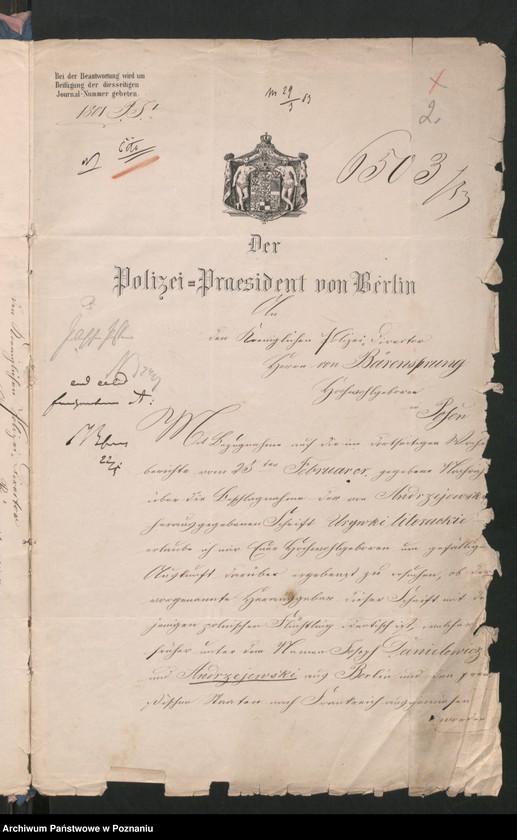 Bei der Beantwortung wird um
Beifügung der diesseitigen
Journal-Nummer gebeten.
1801 P.S.I
29/3 53
2.
6503/53
Der
Polizei=Praesident von Berlin
An
den Koeniglichen Polizei Director
Herrn von Bärensprung
Hochwohlgeboren
in Posen
Mit Bezugnahme auf die im dortseitigen Wochen
berichte vom 25ten Februar cr. gegebene Nachricht
über die Beschlagnahme der von Andrzejewski
herausgegebenen Schrift Urywki Uteruckie
erlaube ich mir Eure Hochwohlgeboren um gefällige
Auskunft darüber ergebenst zu ersuchen, ob der
vorgenannte Herausgeber dieser Schrift mit dem
jenigen polnischen Flüchtling identisch ist, welcher
früher unter dem Namen Joseph Danielewicz
und Andrzejewski aus Berlin und den preu
ßischen Staaten nach Frankreich ausgewiesen
worden
Archiwum Państwowe w Poznaniu